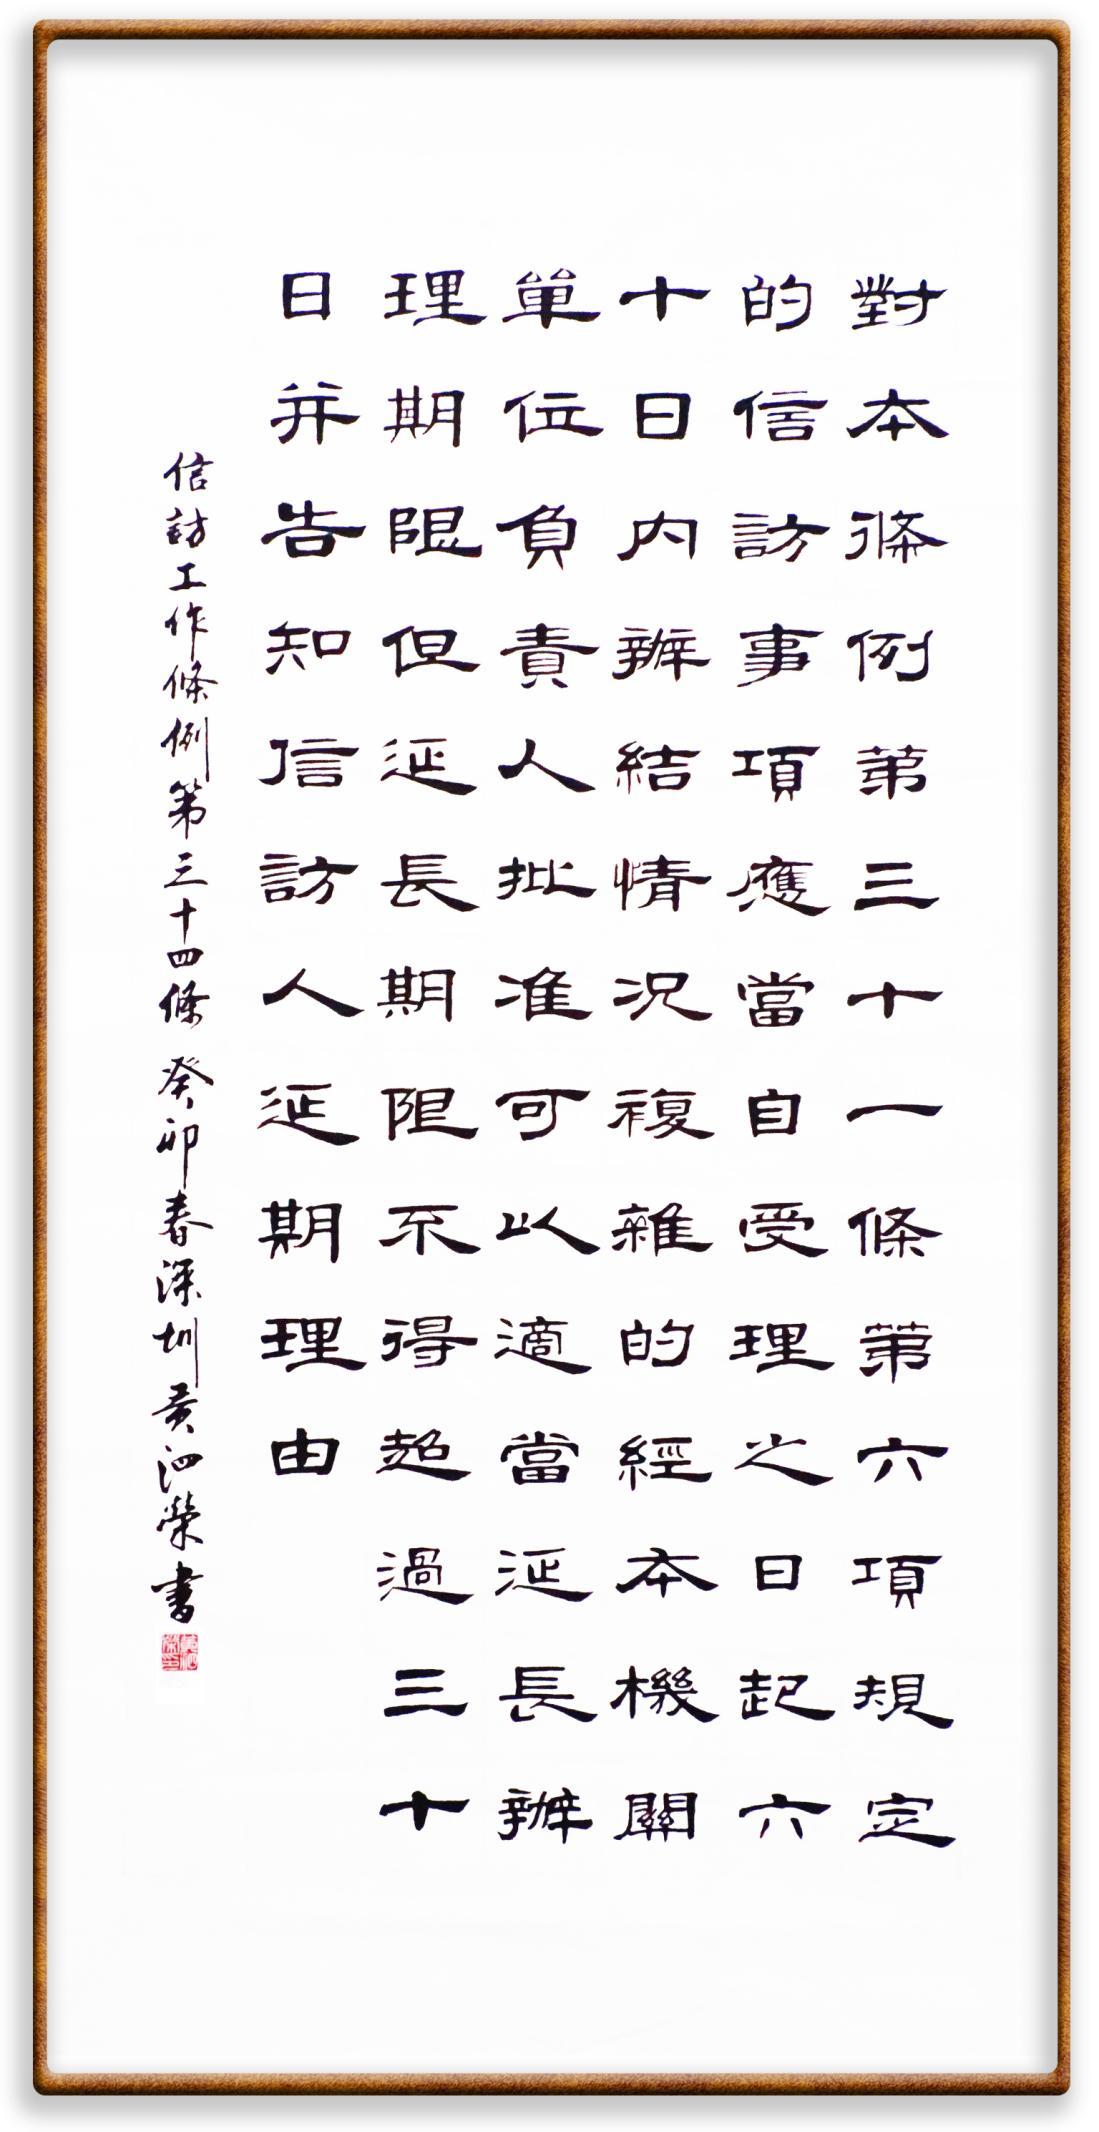 對本條例第三十一條第六項規定
的信訪事項應當自受理之日起六
十日内辦結情況複雜的經本機關
單位負責人批准可以適當延長辦
理期限但延長期限不得超過三十
日并告知信訪人延期理由
信訪工作條例第三十四條 癸卯春深圳黃泗榮書